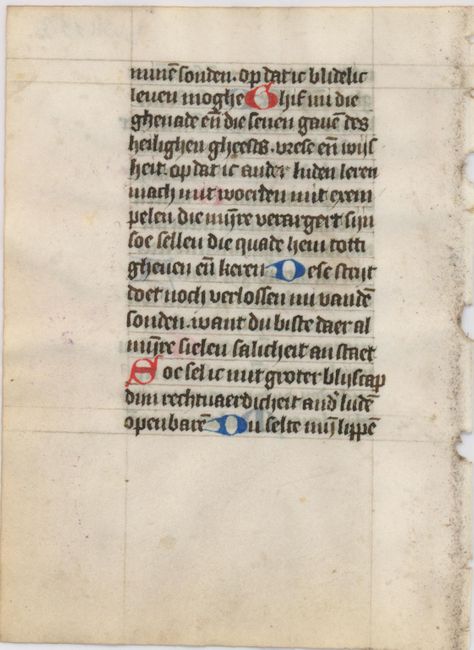 minē sonden. op dat ic blidelic
leuen moghe Ghif mi die
ghenade eñ die seuen gauē des
heilighen gheests. vrese eñ wijs
heit. op dat ic ander luden leren
mach mit woerden mit exem
pelen die mijre verargert sijn
soe sellen die quade hem totti
gheuen eñ keren Dese strijt
doet noch verlossen mi vandē
sonden. want du biste daer al
mijre sielen salicheit an staet
Soe sel ic mit groter blijscap
dijn rechtuaerdicheit and' ludē
openbarē Du selte mijn lippē